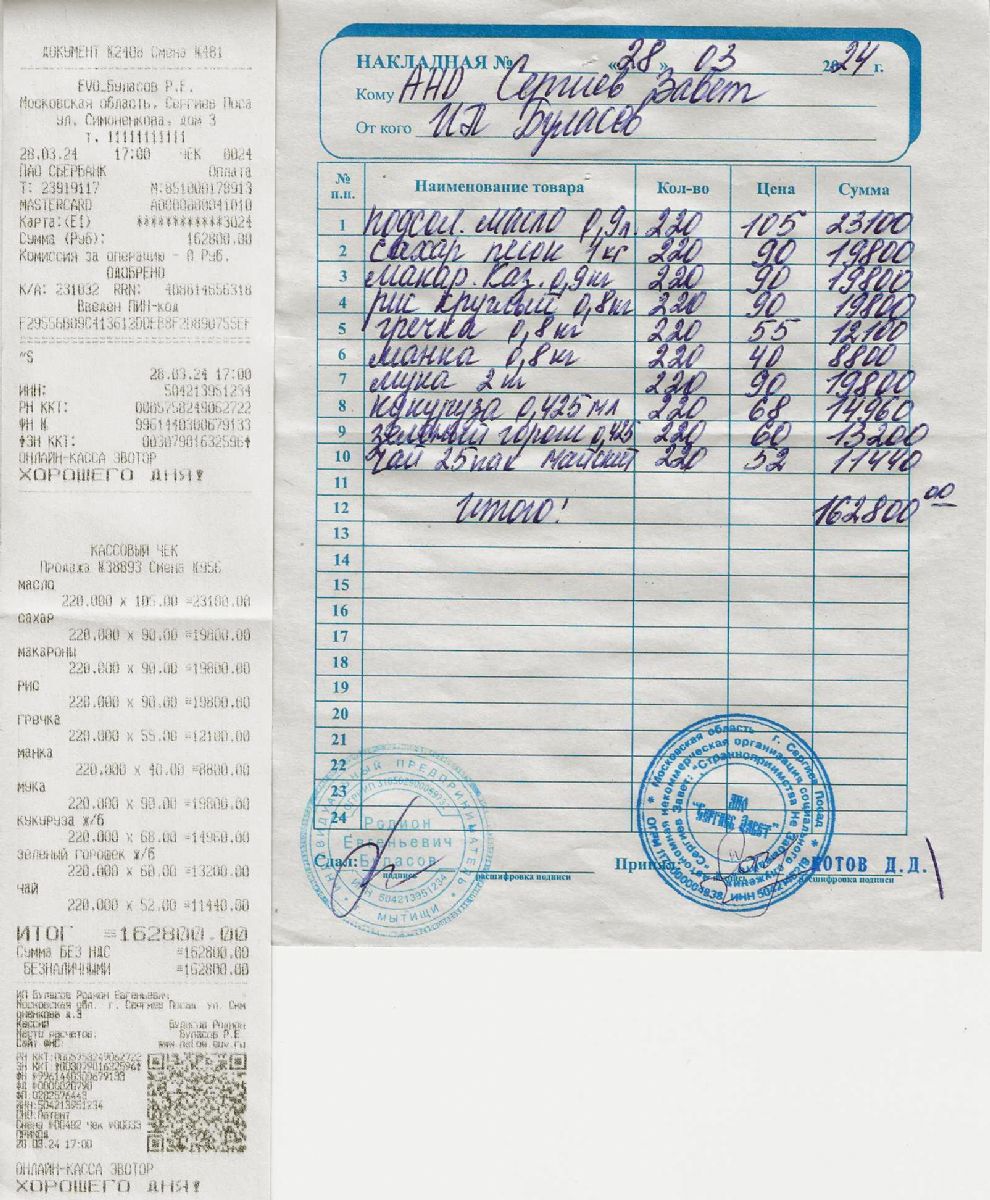 ДОКУМЕНТ №2408 Смена №481
EVO_Буласов Р.Е.
Московская область, Сергиев Поса
ул. Симоненкова, дом 3
т. 11111111111
28.03.24 17:00 ЧЕК 0024
ПАО СБЕРБАНК Оплата
Т: 23919117 М:851000178913
MASTERCARD A0000000041010
Карта:(E1) ************3024
Сумма (Руб): 162800.00
Комиссия за операцию - 0 Руб.
ОДОБРЕНО
К/А: 231032 RRN: 408814656318
Введен ПИН-код
28.03.24 17:00
ИНН: 504213951234
РН ККТ: 0005758249062722
ФН № 9961440300679133
ОНЛАЙН-КАССА ЭВОТОР
ХОРОШЕГО ДНЯ!
КАССОВЫЙ ЧЕК
Продажа №38893 Смена №956
масло
220.000 x 105.00 =23100.00
сахар
220.000 x 90.00 =19800.00
макароны
220.000 x 90.00 =19800.00
рис
220.000 x 90.00 =19800.00
гречка
220.000 x 55.00 =12100.00
манка
220.000 x 40.00 =8800.00
мука
220.000 x 90.00 =19800.00
кукуруза ж/б
220.000 x 68.00 =14960.00
зеленый горошек ж/б
220.000 x 60.00 =13200.00
чай
220.000 x 52.00 =11440.00
ИТОГ =162800.00
Сумма БЕЗ НДС =162800.00
БЕЗНАЛИЧНЫМИ =162800.00
ИП Буласов Родион Евгеньевич
Московская обл. г. Сергиев Посад ул. Сим
оненкова д.3
Кассир Буласов Родион
Место расчетов: Буласов Р.Е
Сайт ФНС: www.nalog.gov.ru
РН ККТ:0005758249062722
ФН №9961440300679133
ИНН:504213951234
СНО:Патент
ПРИХОД
28.03.24 17:00
ОНЛАЙН-КАССА ЭВОТОР
ХОРОШЕГО ДНЯ!
НАКЛАДНАЯ № «28» 03 2024 г.
Кому АНО Сергиев Завет
От кого ИП Буласов
№ п.п. Наименование товара Кол-во Цена Сумма
1 подсол. масло 0,9л. 220 105 23100
2 сахар песок 1 кг 220 90 19800
3 макар. Каз. 0,9кг 220 90 19800
4 рис круглый 0,8кг 220 90 19800
5 гречка 0,8 кг 220 55 12100
6 манка 0,8 кг 220 40 8800
7 мука 2 кг 220 90 19800
8 кукуруза 0,425 мл 220 68 14960
9 зеленый горош 0,425 220 60 13200
10 чай 25пак майский 220 52 11440
11
12 Итого! 162800 00
13
14
15
16
17
18
19
20
21
22
23
24
ИНДИВИДУАЛЬНЫЙ ПРЕДПРИНИМАТЕЛЬ
Родион
Евгеньевич
Буласов
ИНН 504213951234
МЫТИЩИ
Московская область г. Сергиев Посад
АНО
"Сергиев Завет"
Сдал: Принял: КОТОВ Д.Д.
подпись расшифровка подписи расшифровка подписи